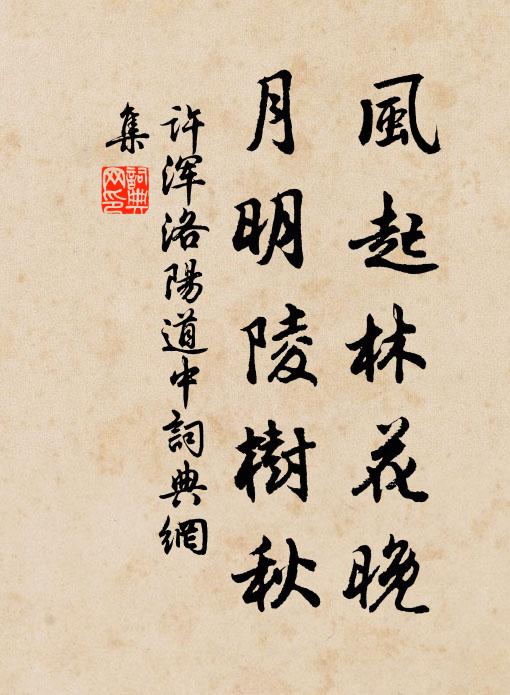 風起林花晚
月明陵樹秋
许渾洛陽道中詞典網
集
詞典
网印